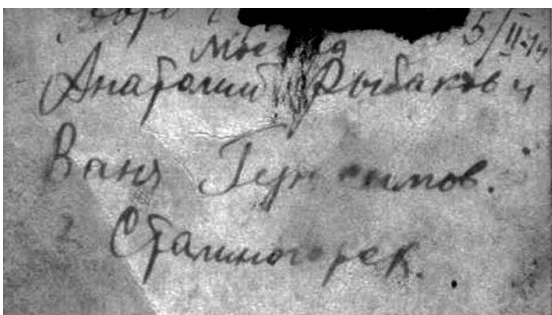 5/II-44
Анатолий Рыбаков и
Ваня Герасимов.
г Сталиногорск.